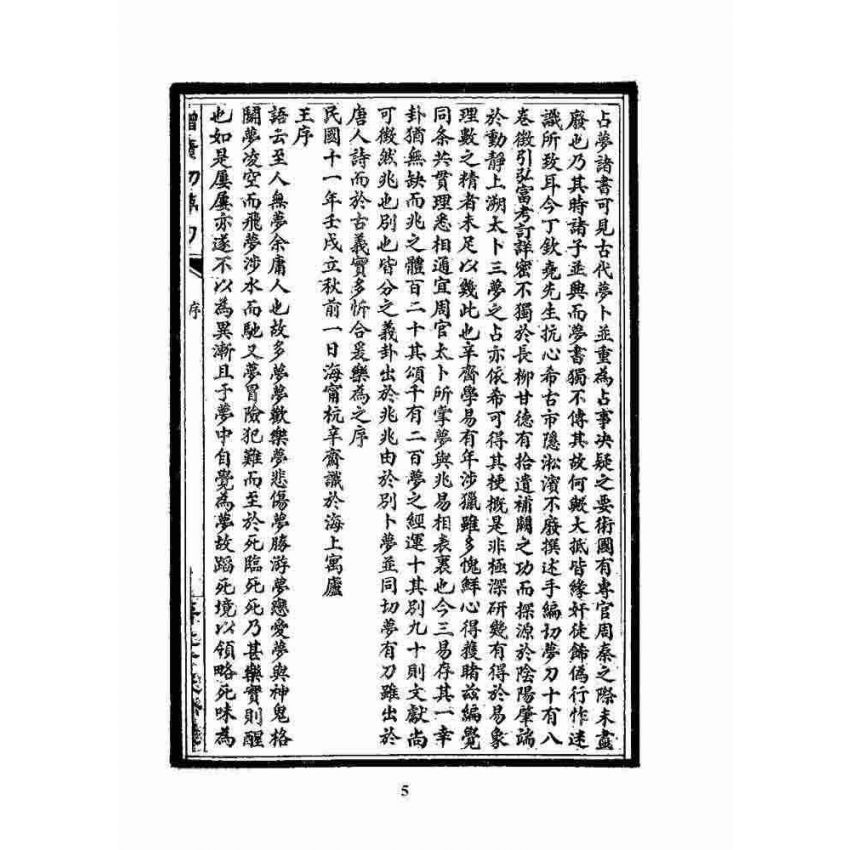 占夢諸書可見古代夢卜並重為占事决疑之要術國有專官周秦之際未盡
廢也乃其時諸子並興而夢書獨不傳其故何歟大抵皆緣奸徒飾僞行怍迷
識所致耳今丁欽堯先生抗心希古市隱淞濱不廢撰述手編切夢刀十有八
卷徵引弘富考訂詳密不獨於長柳甘德有拾遺補闕之功而探源於陰陽肇端
於動靜上溯太卜三夢之占亦依希可得其梗概是非極深研幾有得於易象
理數之精者未足以幾此也辛齋學易有年涉獵雖多愧鮮心得獲睹茲編覺
同条共貫理悉相通宜周官太卜所掌夢與兆易相表裏也今三易存其一幸
卦猶無缺而兆之體百二十其頌千有二百夢之經運十其別九十則文獻尚
可徵然兆也別也皆分之義卦出於兆兆由於別卜夢並同切夢有刀雖出於
唐人詩而於古義實多忻合爰樂為之序
民國十一年壬戌立秋前一日海甯杭辛齋識於海上寓廬
王序
語云至人無夢余庸人也故多夢夢歡樂夢悲傷夢勝游夢戀愛夢與神鬼格
鬭夢凌空而飛夢涉水而馳又夢冒險犯難而至於死臨死死乃甚樂實則醒
也如是屢屢亦遂不以為異漸且于夢中自覺為夢故蹈死境以領略死味為
序
5